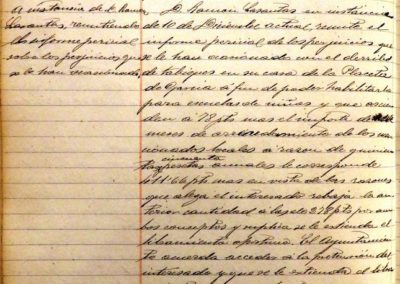 A instancia de D. Ramón
Lasantas, remitiendo
el informe pericial
sobre los perjuicios que
se le han ocasionado
D. Ramón Lasantas en instancia
de 10 de Diciembre actual, remite el
informe pericial de los perjuicios que
se le han ocasionado con el derribo
de tabiques en su casa de la Placeta
de García a fin de poder habilitarla
para escuela de niñas y que ascien
den a 78 pts mas el importe de
meses de arrendamiento de los men
cionados locales a razon de quinien
cincuenta
tas pesetas anuales le corresponde
411'66 pts mas en vista de las razones
que alega el interesado rebaja la an
terior cantidad a la de 278 pts por am
bos conceptos y suplica se le extienda el
libramiento oportuno. El Ayuntamien
to acuerda acceder a la pretension del
interesado y que se le extienda el libra